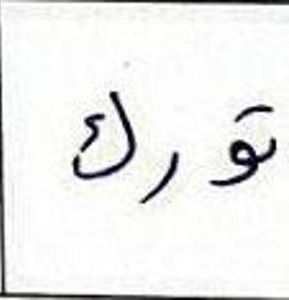 تورك